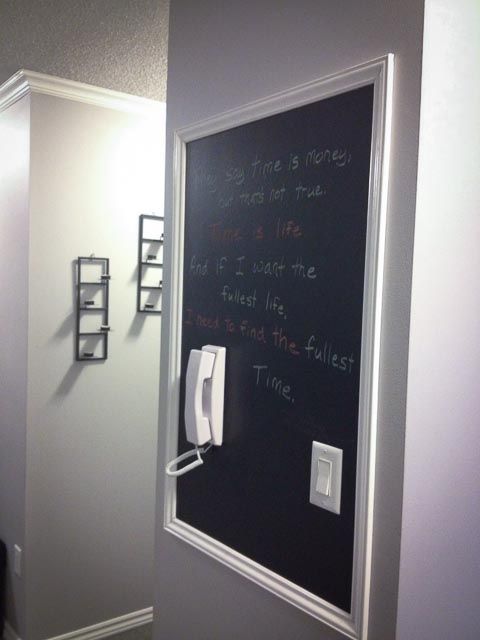 They say time is money,
but that's not true.
Time is life
And if I want the
fullest life,
I need to find the fullest
Time.